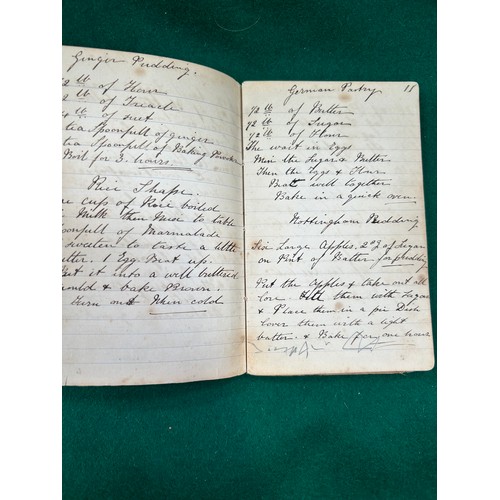 Ginger Pudding.
2 lb of Flour
2 lb of Treacle
4 lb of suet
tea Spoonfull of ginger
tea Spoonfull of Baking Powder
Boil for 3 hours.
Rice Shape.
cup of Rice boiled
Milk then Mix to table
spoonfull of Marmalade
sweeten to taste a little
butter. 1 Egg Beat up.
Put it into a well buttered
mould & bake Brown.
Turn out When cold
German Pastry 18
1/2 lb of Butter
1/2 lb of Sugar
1/2 lb of Flour
The wait in Eggs
Mix the Sugar & Butter
Then the Eggs & Flour
Beat well together
Bake in a quick oven.
Nottingham Pudding
Six Large Apples. 2 oz of Sugar
on Pint of Batter for pudding
Put the Apples & take out all
Core fill them with Sugar
& Place them in a pie Dish
Cover them with a light
batter. & Bake for one hour